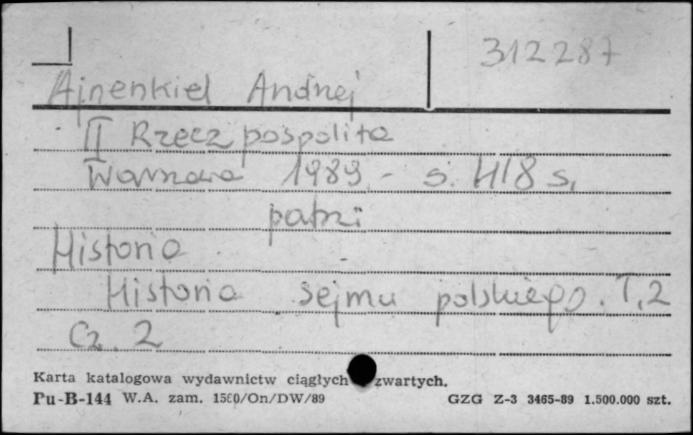 312287
Ajnenkiel Andrzej
II Rzeczpospolita
Warszawa 1989.- s. 418 s.
patrz:
Historia
Historia sejmu polskiego. T.2
Cz. 2
Karta katalogowa wydawnictw ciągłych zwartych.
Pu-B-144 W.A. zam. 1560/On/DW/89 GZG Z-3 3465-89 1.500.000 szt.